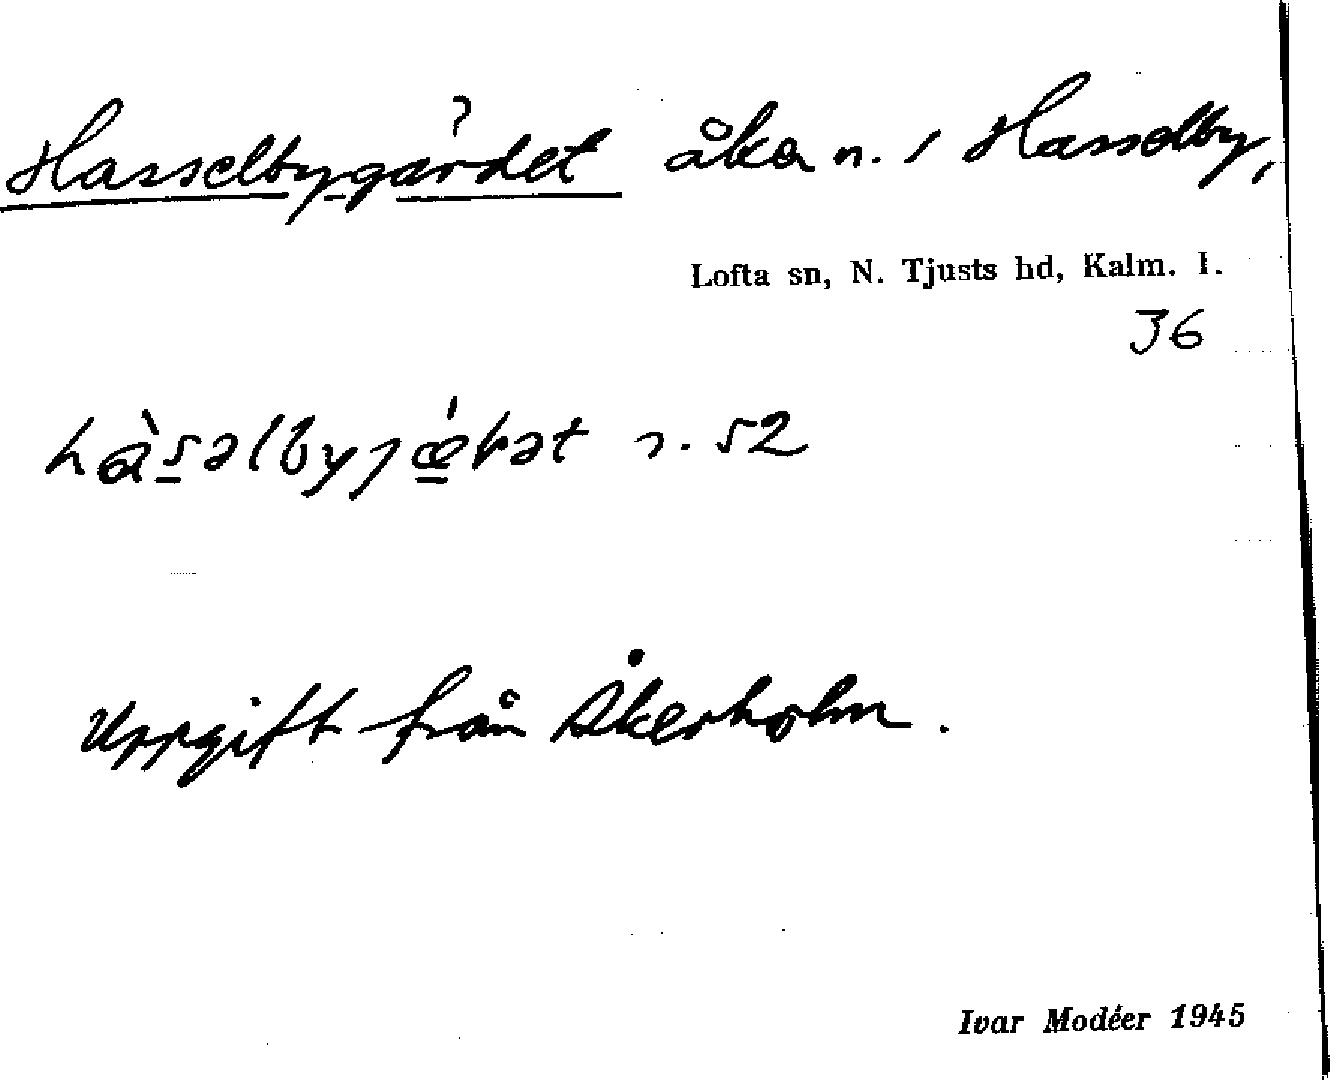 Hasselbygärdet åker n. / Hasselby,
Lofta sn, N. Tjusts hd, Kalm. l.
J6
n. 52
Uppgift från Åkerholm.
Ivar Modéer 1945